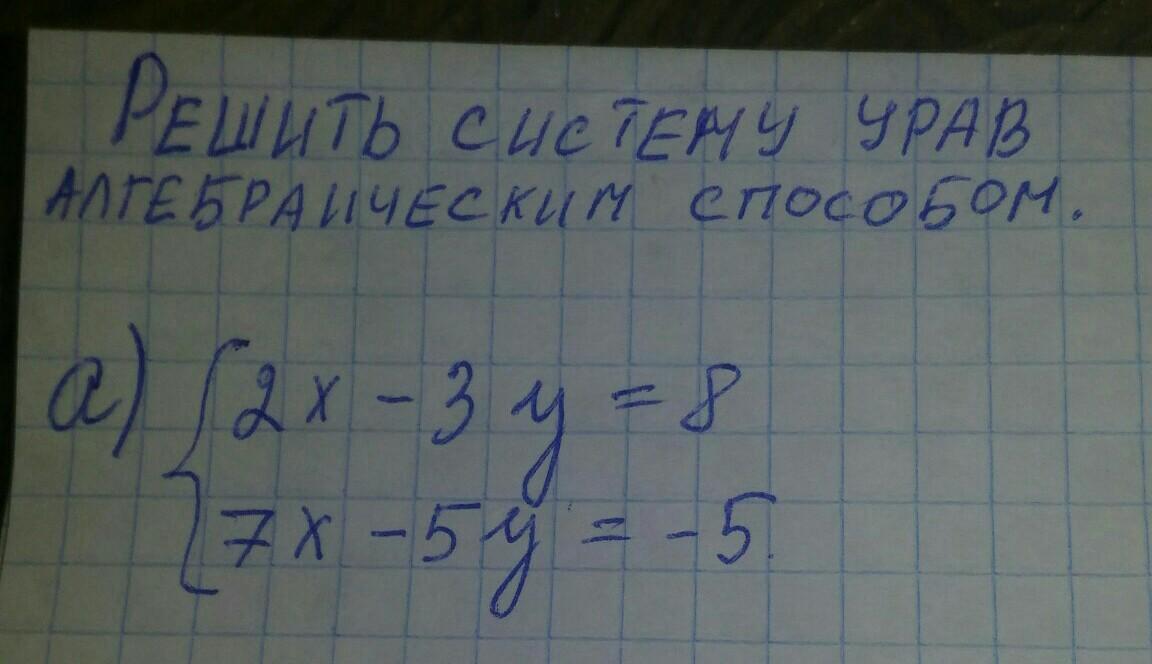 РЕШИТЬ СИСТЕМУ УРАВ
АЛГЕБРАИЧЕСКИМ СПОСОБОМ.
а) { 2x - 3y = 8
7x - 5y = -5